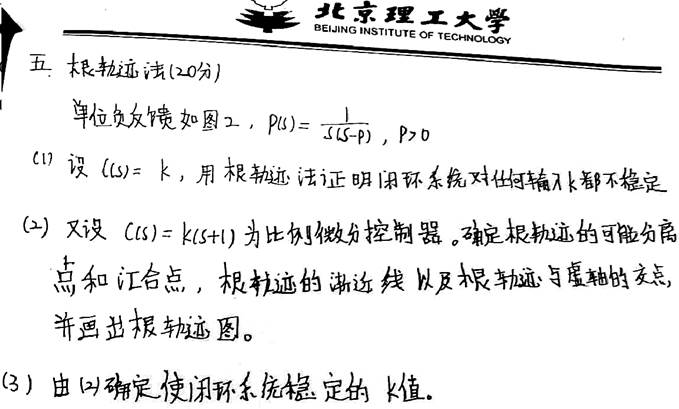 北京理工大学
BEIJING INSTITUTE OF TECHNOLOGY
五. 根轨迹法(20分)
单位负反馈如图2, P(s)= 1/s(s-p), P>0
(1) 设 C(s)= k, 用根轨迹法证明闭环系统对任何输入k都不稳定
(2) 又设 C(s)=k(s+1)为比例微分控制器。确定根轨迹的可能分离
点和汇合点, 根轨迹的渐近线以及根轨迹与虚轴的交点,
并画出根轨迹图。
(3) 由(2)确定使闭环系统稳定的 k值。